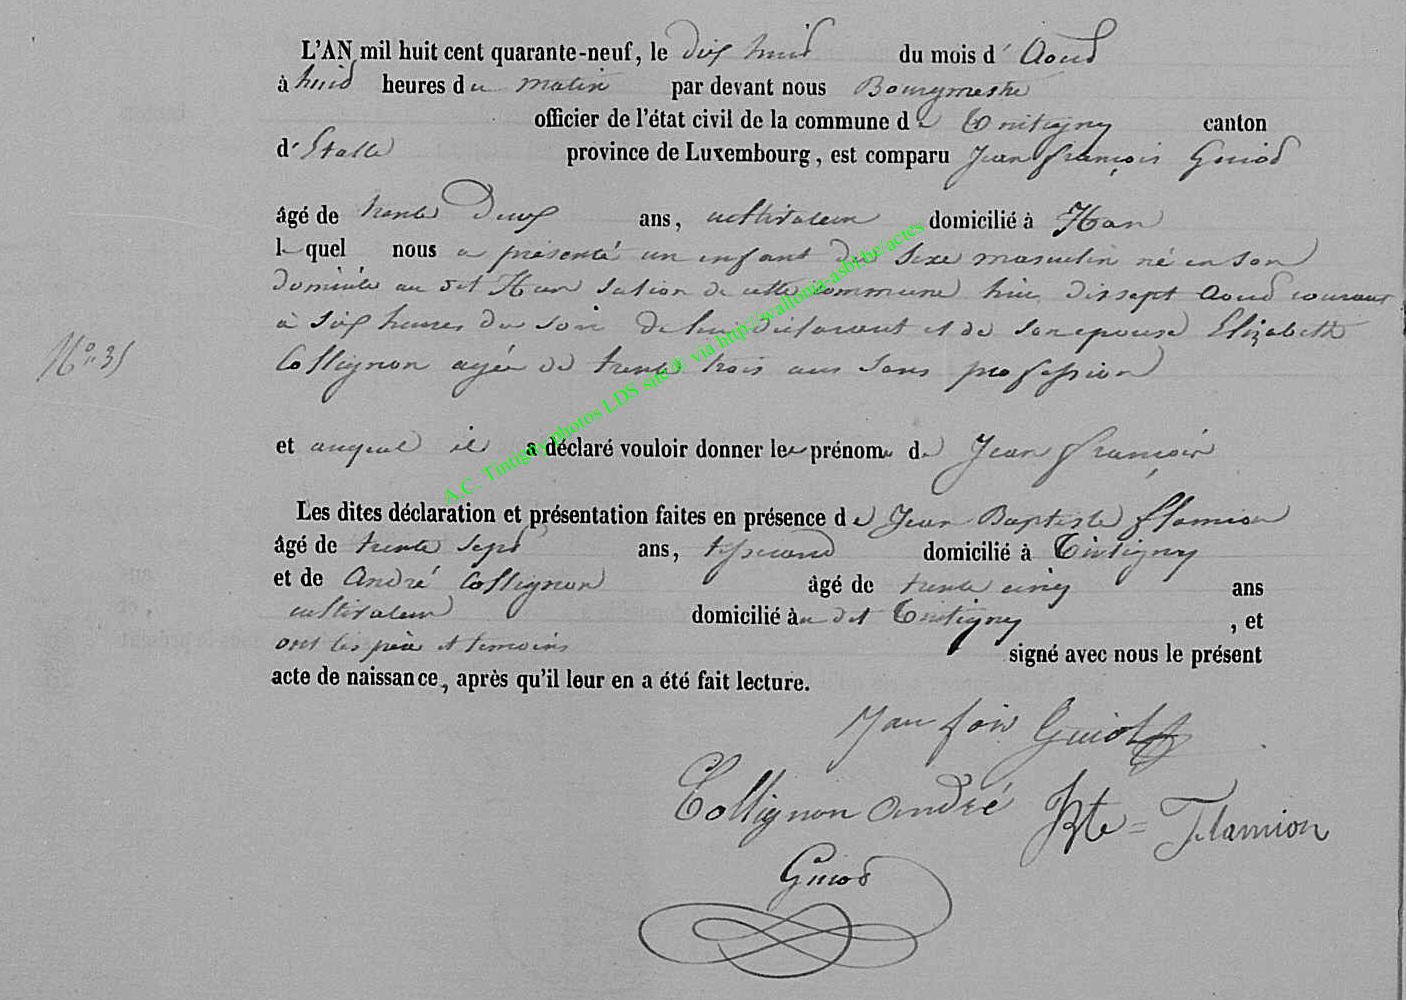 L'AN mil huit cent quarante-neuf, le dix huit du mois d'Aout
à huit heures du matin par devant nous Bourgmestre
officier de l'état civil de la commune de Tintigny canton
d'Etalle province de Luxembourg, est comparu Jean françois Guiot
âgé de trente Deux ans, cultivateur domicilié à Han
lequel nous a présenté un enfant du Sexe masculin né en son
domicile au dit Han section de cette commune hier dix sept Aout courant
à Six heures du soir de lui déclarant et de son epouse Elizabeth
Collignon agée de trente trois ans Sans profession
N° 35
et auquel il a déclaré vouloir donner les prénoms de Jean françois
Les dites déclaration et présentation faites en présence de Jean Baptiste flamion
âgé de trente Sept ans, tisserand domicilié à Tintigny
et de André Collignon âgé de trente cinq ans
cultivateur domicilié au dit Tintigny, et
ont les père et temoins signé avec nous le présent
acte de naissance, après qu'il leur en a été fait lecture.
Jean fois Guiot
Collignon andré JBte = Flamion
Guiot
A.C. Tintigny photos LDS site via http://wallonia-asbl.be/actes